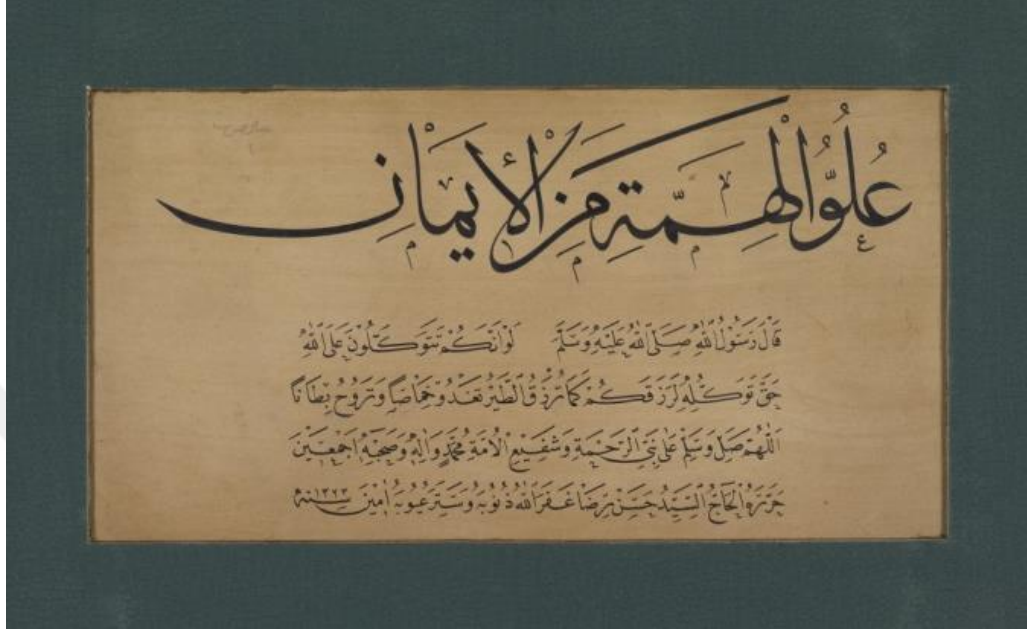 عُلُوُّ الْهِمَّةِ مِنَ الْأِيمَانِ
قَالَ رَسُولُ اللّٰهِ صَلَّى اللّٰهُ عَلَيْهِ وَسَلَّمَ لَوْ اَنَّكُمْ تَتَوَكَّلُونَ عَلَى اللّٰهِ
حَقَّ تَوَكُّلِهِ لَرَزَقَكُمْ كَمَا تُرْزَقُ الطَّيْرُ تَغْدُو خِمَاصًا وَتَرُوحُ بِطَانًا
اَللّٰهُمَّ صَلِّ وَسَلِّمْ عَلٰى نَبِيِّ الرَّحْمَةِ وَشَفِيعِ الْاُمَّةِ مُحَمَّدٍ وَاٰلِهِ وَصَحْبِهِ اَجْمَعِينَ
حَرَّرَهُ الْحَاجُّ السَّيِّدُ حَسَنْ رِضَا غَفَرَ اللّٰهُ ذُنُوبَهُ وَسَتَرَ عُيُوبَهُ اٰمِينَ سنة